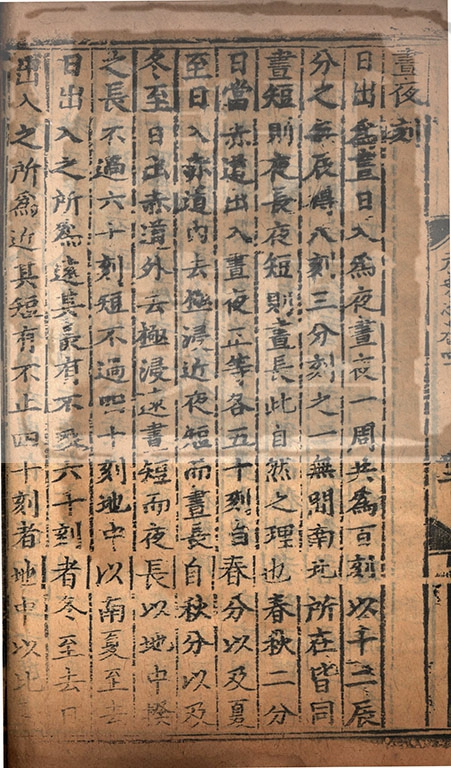 晝夜刻
日出爲晝日入爲夜晝夜一周共爲百刻以十二辰
分之每辰得八刻三分刻之一無間南北所在皆同
晝短則夜長夜短則晝長此自然之理也春秋二分
日當赤道出入晝夜正等各五十刻自春分以及夏
至日入赤道内去極浸近夜短而晝長自秋分以及
冬至日出赤道外去極浸遠晝短而夜長以地中揆
之長不過六十刻短不過四十刻地中以南夏至去
日出入之所爲遠其長有不及六十刻者冬至去日
出入之所爲近其短有不止四十刻者地中以北